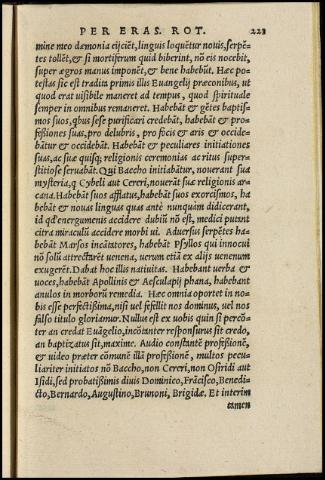 PER ERAS. ROT. 223
mine meo dæmonia eijciēt, linguis loquētur nouis, serpē⸗
tes tollēt, & si mortiferum quid biberint, nō eis nocebit,
super ægros manus imponēt, & bene habebūt. Hæc po⸗
testas sic est tradita primis illis Euangelij præconibus, ut
quod erat uisibile maneret ad tempus, quod spirituale
semper in omnibus remaneret. Habebāt & gētes baptis⸗
mos suos, qbus sese purificari credebāt, habebāt & pro⸗
fessiones suas, pro delubris, pro focis & aris & occide⸗
bātur & occidebāt. Habebāt & peculiares initiationes
suas, ac suæ quisq; religionis ceremonias ac ritus super⸗
stitiose seruabāt. Qui Baccho initiabātur, nouerant sua
mysteria, q Cybeli aut Cereri, nouerāt suæ religionis ar⸗
cana. Habebāt suos afflatus, habebāt suos exorcismos, ha
bebāt & nouas linguas quas antè nunquàm didicerant,
id qd energumenis accidere dubiū nō est, medici putant
citra miraculū accidere morbi ui. Aduersus serpētes ha⸗
bebāt Marsos incātatores, habebāt Psyllos qui innocui
nō solū attrectarēt uenena, uerum etiā ex alijs uenenum
exugerēt. Dabat hoc illis natiuitas. Habebant uerba &
uoces, habebāt Apollinis & Aesculapij phana, habebant
anulos in morborū remedia. Hæc omnia oportet in no⸗
bis esse perfectissima, nisi uel fefellit nos dominus, uel nos
falso titulo gloriamur. Nullus est ex uobis quin si percō⸗
ter an credat Euāgelio, incōtanter responsurus sit credo,
an baptizatus sit, maxime. Audio constantē professionē,
& uideo præter cōmunē illā professionē, multos pecu⸗
liariter initiatos nō Baccho, non Cereri, non Osiridi aut
Isidi, sed probatissimis diuis Dominico, Frācisco, Benedi⸗
cto, Bernardo, Augustino, Brunoni, Brigidæ. Et interim
tamen